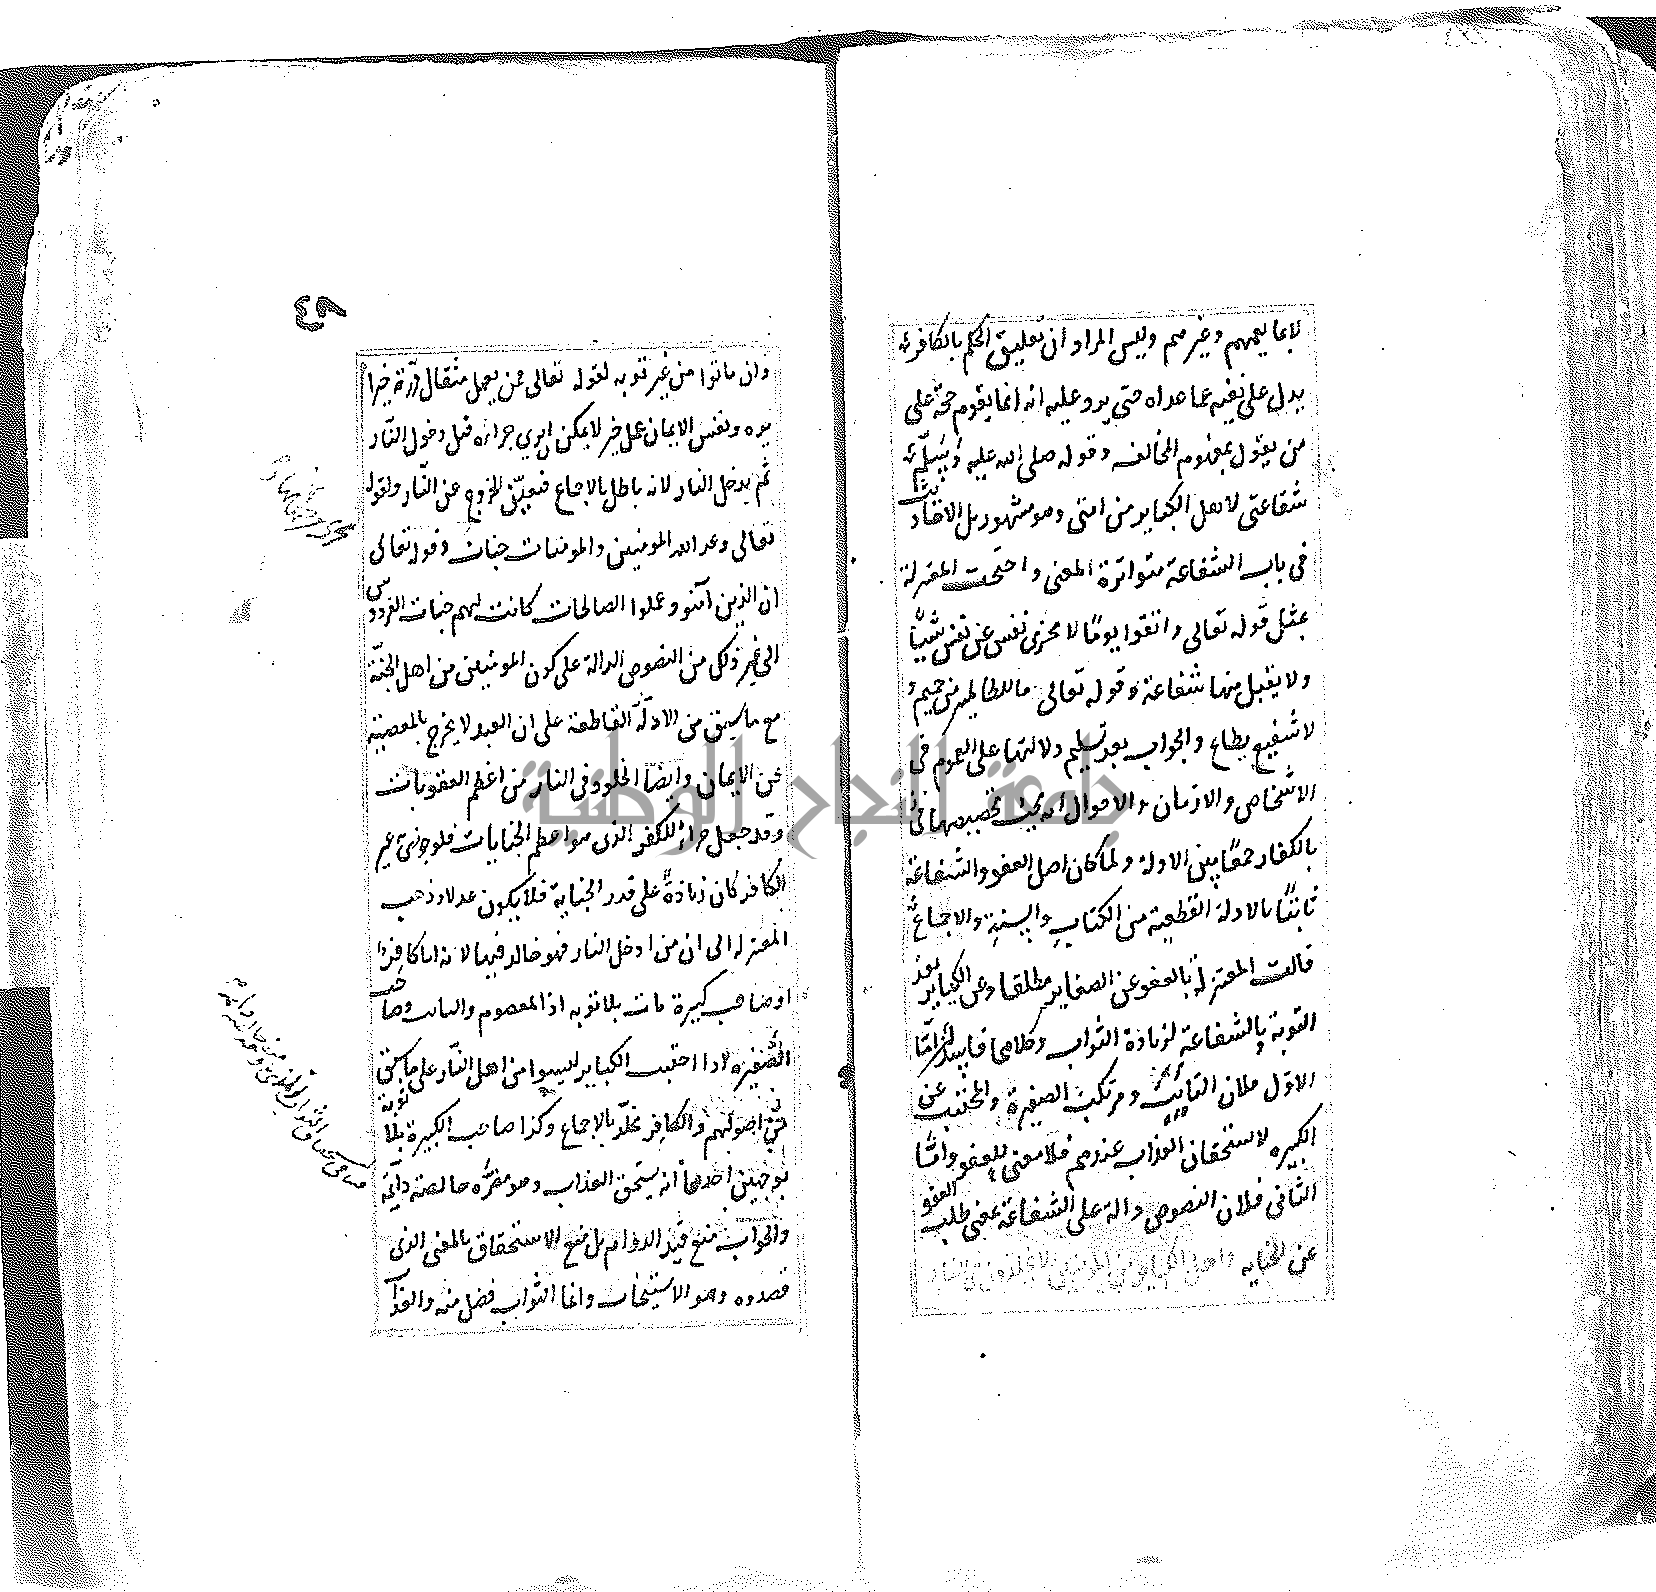 لا بما يعمهم وغيرهم وليس المراد ان تعليق الحكم بالكافر
يدل على نفيه عما عداه حتى يرد عليه انه انما يقوم حجة على
من يقول بمفهوم المخالف وقوله صلى الله عليه وسلم
شفاعتي لاهل الكباير من امتي وهو مشهور بل الاحاديث
في باب الشفاعة متواترة المعنى واحتجت المعتزلة
بمثل قوله تعالى واتقوا يوما لا تجزى نفس عن نفس شيئا
ولا يقبل منها شفاعة وقوله تعالى ما للظالمين من حميم و
لا شفيع يطاع والجواب بعد تسليم دلالتها على العموم في
الاشخاص والازمان والاحوال انه يجب تخصيصها
بالكفار جمعا بين الادلة ولما كان اصل العفو والشفاعة
ثابتا بالادلة القطعية من الكتاب والسنة والاجماع
قالت المعتزلة بالعفو عن الصغاير مطلقا وعن الكباير بعد
التوبة بالشفاعة لزيادة الثواب وكلاهما فاسد اما
الاول فلان التايب ومرتكب الصغيرة والمجتنب عن
الكبيره لا يستحقان العذاب عندهم فلا معنى للعفو واما
الثاني فلان النصوص دالة على الشفاعة بمعنى طلب العفو
عن الجنايه واهل الكباير من المؤمنين لا يخلدون في النار
٤٨
وان ماتوا من غير توبه لقوله تعالى فمن يعمل مثقال ذرة خيرا
يره ونفس الايمان عمل خير لا يمكن ان يرى جزاءه قبل دخول النار
ثم يدخل النار لانه باطل بالاجماع فتعين الخروج عن النار ولقوله
تعالى وعد الله المومنين والمومنات جنات وقوله تعالى
ان الذين آمنو وعملوا الصالحات كانت لهم جنات الفردوس
الى غير ذلك من النصوص الدالة على كون المومنين من اهل الجنة
مع ما سبق من الادلة القاطعة على ان العبد لا يخرج بالمعصية
عن الايمان وايضا الخلود في النار من اعظم العقوبات
وقد جعل جزاء للكفر الذى هو اعظم الجنايات فلو جوزى به غير
الكافر كان زيادة على قدر الجناية فلا يكون عدلا وذهب
المعتزله الى ان من ادخل النار فهو خالد فيها لانه اما كافر
او صاحب كبيرة مات بلا توبه اذ المعصوم والتايب وصاحب
الصغيره اذا اجتنب الكباير ليسوا من اهل النار على ما سبق
من اصولهم والكافر مخلد بالاجماع وكذا صاحب الكبيرة بلا توبة
بوجهين احدهما انه يستحق العذاب وهو مضرة خالصة دائمة
والجواب منع قيد الدوام بل منع الاستحقاق بالمعنى الذى
قصدوه وهو الاستيجاب وانما الثواب فضل منه والعذاب
جامعة النجاح الوطنية